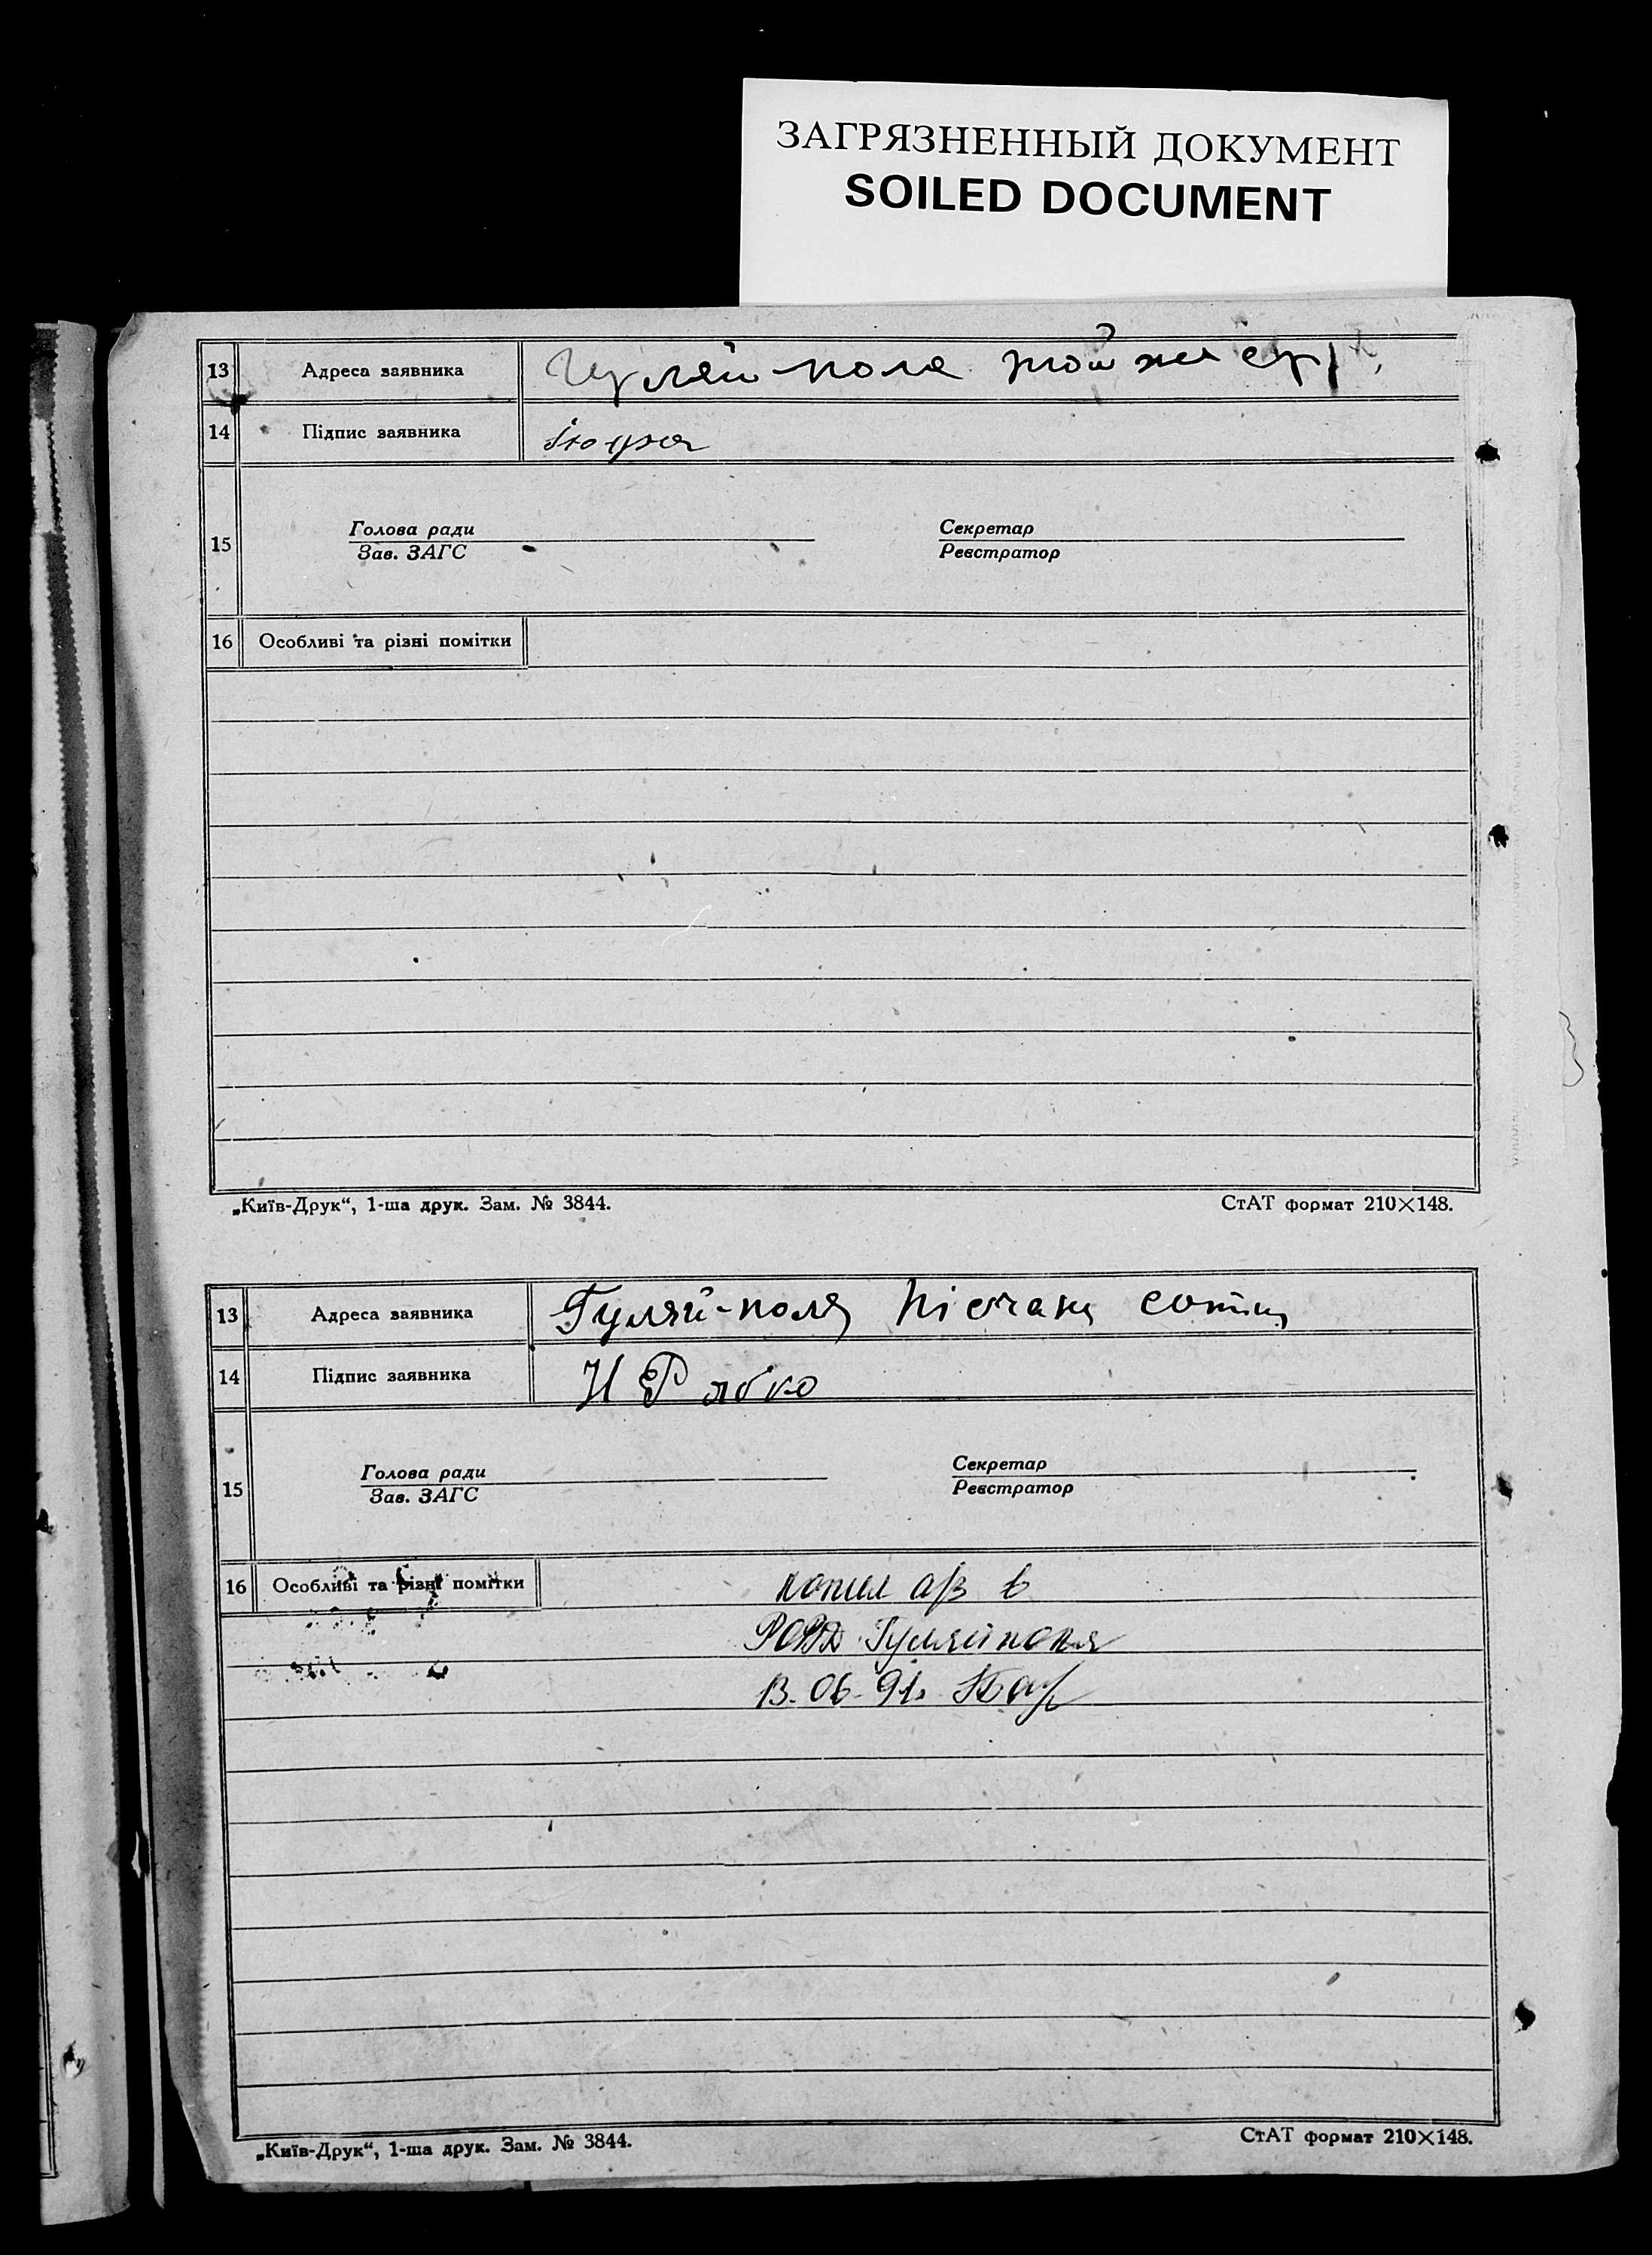 ЗАГРЯЗНЕННЫЙ ДОКУМЕНТ
SOILED DOCUMENT
13 Адреса заявника Гуляй-поля той же
14 Підпис заявника
15 Голова ради Секретар
Зав. ЗАГС Реєстратор
16 Особливі та різні помітки
„Київ-Друк“, 1-ша друк. Зам. № 3844. СтАТ формат 210×148.
13 Адреса заявника Гуляй-поля Пісчана сотня
14 Підпис заявника Н Рябко
15 Голова ради Секретар
Зав. ЗАГС Реєстратор
16 Особливі та різні помітки копия а/з в
Гуляйполя
13.06.91г
„Київ-Друк“, 1-ша друк. Зам. № 3844. СтАТ формат 210×148.